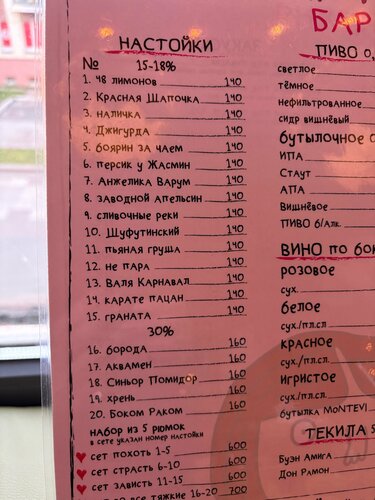 НАСТОЙКИ
№ 15-18%
1. 48 лимонов 140
2. Красная Шапочка 140
3. наличка 140
4. Джигурда 140
5. боярин за чаем 140
6. персик у Жасмин 140
7. Анжелика Варум 140
8. заводной апельсин 140
9. сливочные реки 140
10. Шуфутинский 140
11. пьяная груша 140
12. не пара 140
13. Валя Карнавал 140
14. карате пацан 140
15. граната 140
30%
16. борода 160
17. Аквамен 160
18. Синьор Помидор 160
19. хрень 160
20. Боком Раком 160
набор из 5 рюмок
в сете указан номер настойки
сет похоть 1-5 600
сет страсть 6-10 600
сет зависть 11-15 600
все тяжкие 16-20 700
БАР
ПИВО 0,
светлое
тёмное
нефильтрованное
сидр вишнёвый
бутылочное
ИПА
Стаут
АПА
Вишнёвое
ПИВО б/алк.
ВИНО по бок
розовое
сух.
белое
сух./пл.сл
красное
сух./пл.сл.
игристое
сух./пл.сл
бутылка MONTEVI
ТЕКИЛА 5
Буэн Амига
Дон Рамон